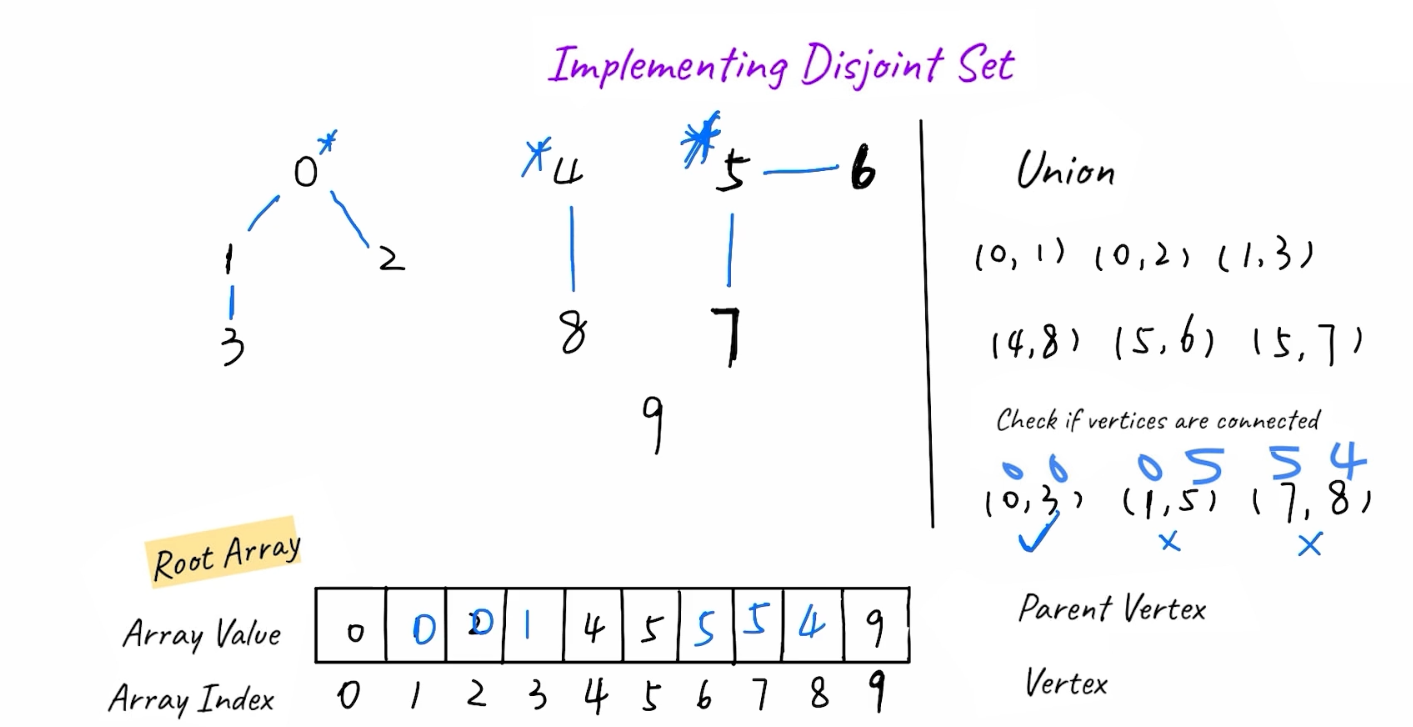 Implementing Disjoint Set
0* *4 *5 6
1 2
3 8 7
9
Union
(0, 1) (0, 2) (1, 3)
(4, 8) (5, 6) (5, 7)
Check if vertices are connected
0 0 0 5 5 4
(0, 3) (1, 5) (7, 8)
✓ × ×
Root Array
Array Value 0 0 0 1 4 5 5 5 4 9 Parent Vertex
Array Index 0 1 2 3 4 5 6 7 8 9 Vertex